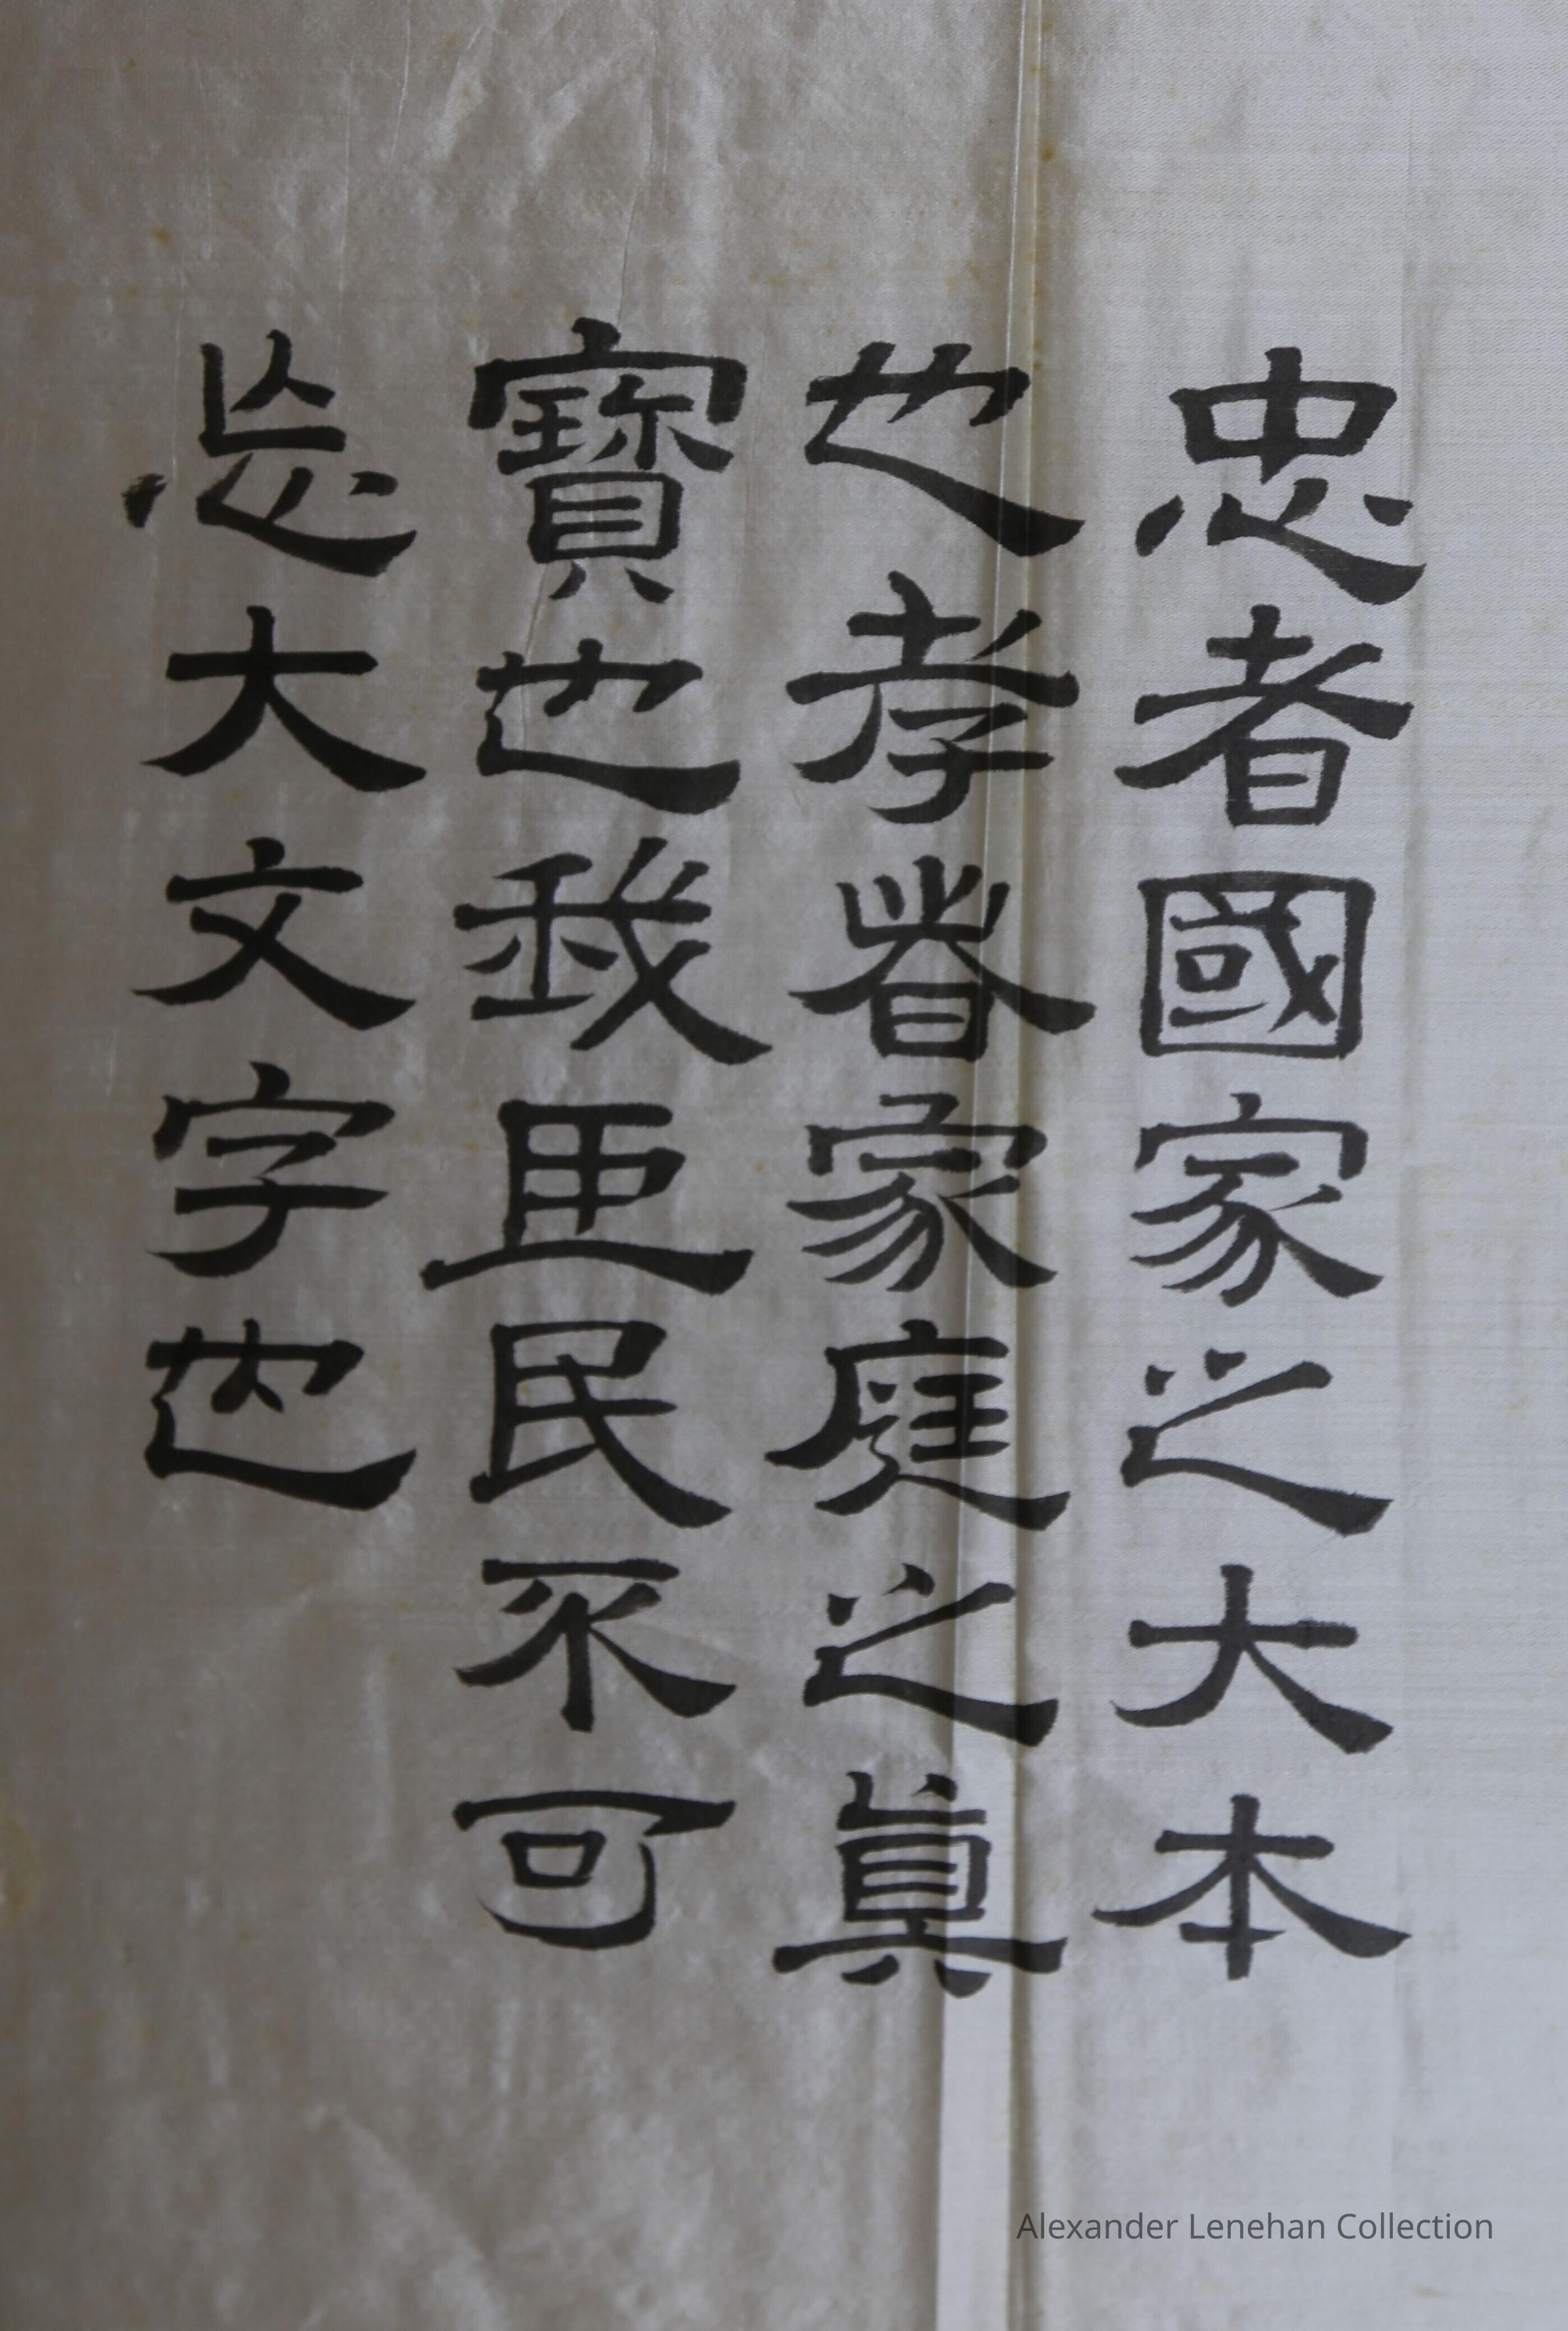 忠者國家之大本
也孝者家庭之眞
寶也我臣民不可
忘大文字也
Alexander Lenehan Collection